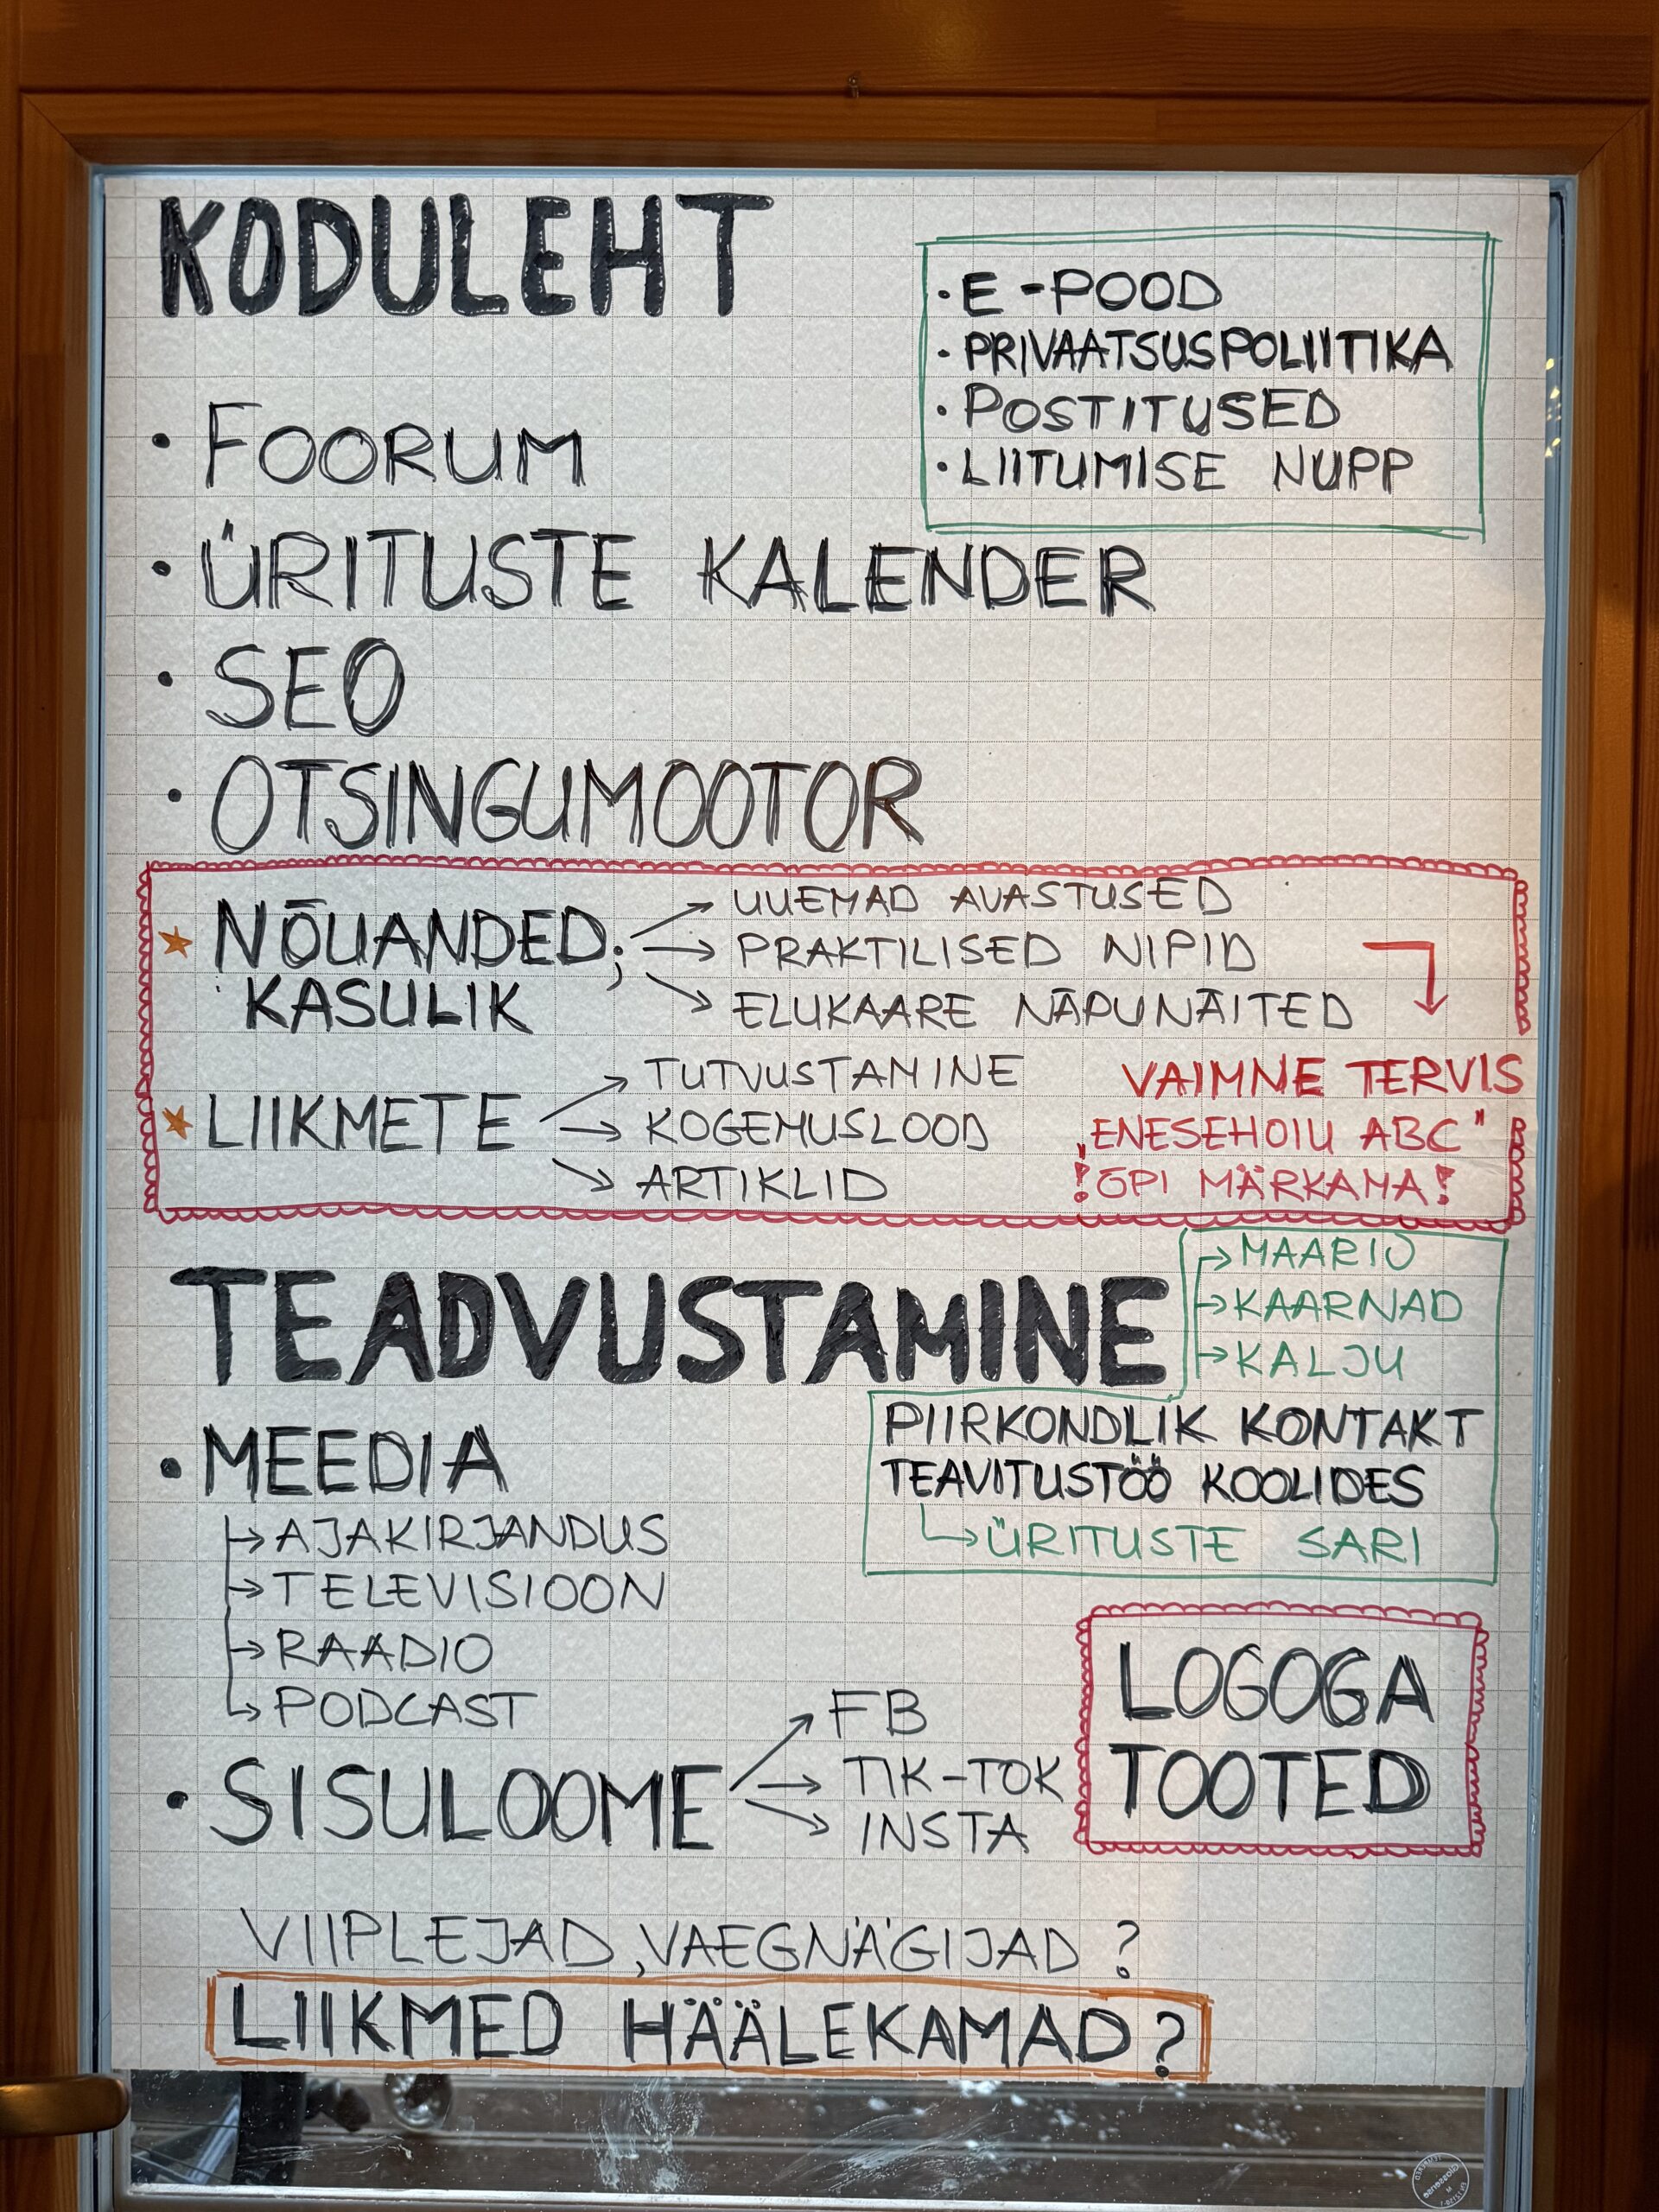 KODULEHT
· E-POOD
· PRIVAATSUSPOLIITIKA
· POSTITUSED
· LIITUMISE NUPP
· FOORUM
· ÜRITUSTE KALENDER
· SEO
· OTSINGUMOOTOR
★ NÕUANDED;
KASULIK
→ UUEMAD AVASTUSED
→ PRAKTILISED NIPID
→ ELUKAARE NÄPUNÄITED
★ LIIKMETE
→ TUTVUSTAMINE
→ KOGEMUSLOOD
→ ARTIKLID
VAIMNE TERVIS
„ENESEHOIU ABC"
!ÕPI MÄRKAMA!
TEADVUSTAMINE
→ MAARJU
→ KAARNAD
→ KALJU
PIIRKONDLIK KONTAKT
TEAVITUSTÖÖ KOOLIDES
→ ÜRITUSTE SARI
· MEEDIA
→ AJAKIRJANDUS
→ TELEVISIOON
→ RAADIO
→ PODCAST
LOGOGA
TOOTED
· SISULOOME
→ FB
→ TIK-TOK
→ INSTA
VIIPLEJAD, VAEGNÄGIJAD?
LIIKMED HÄÄLEKAMAD?